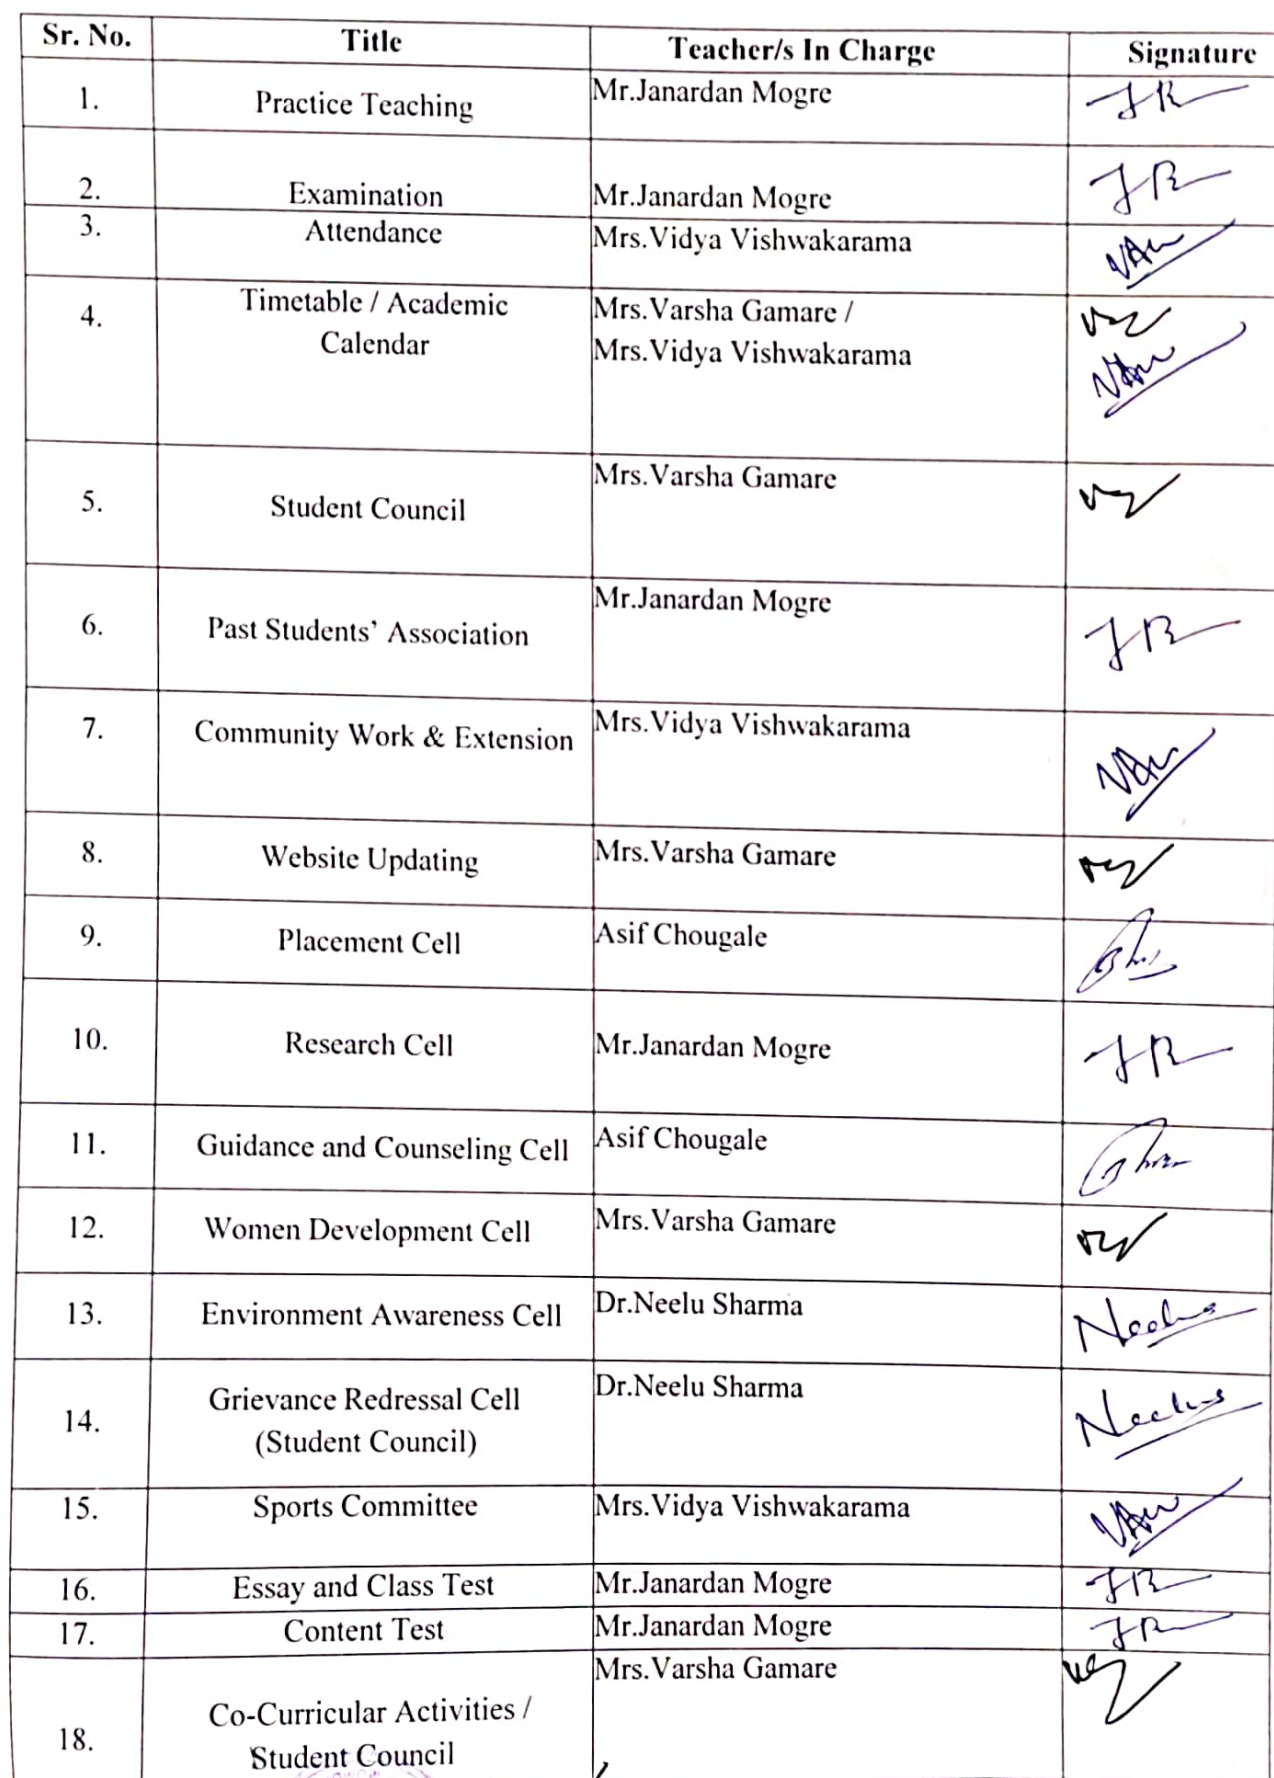 Sr. No. Title Teacher/s In Charge Signature
1. Practice Teaching Mr.Janardan Mogre
2. Examination Mr.Janardan Mogre
3. Attendance Mrs.Vidya Vishwakarama
4. Timetable / Academic Mrs.Varsha Gamare /
Calendar Mrs.Vidya Vishwakarama
5. Student Council Mrs.Varsha Gamare
6. Past Students' Association Mr.Janardan Mogre
7. Community Work & Extension Mrs.Vidya Vishwakarama
8. Website Updating Mrs.Varsha Gamare
9. Placement Cell Asif Chougale
10. Research Cell Mr.Janardan Mogre
11. Guidance and Counseling Cell Asif Chougale
12. Women Development Cell Mrs.Varsha Gamare
13. Environment Awareness Cell Dr.Neelu Sharma
14. Grievance Redressal Cell Dr.Neelu Sharma
(Student Council)
15. Sports Committee Mrs.Vidya Vishwakarama
16. Essay and Class Test Mr.Janardan Mogre
17. Content Test Mr.Janardan Mogre
18. Co-Curricular Activities / Mrs.Varsha Gamare
Student Council